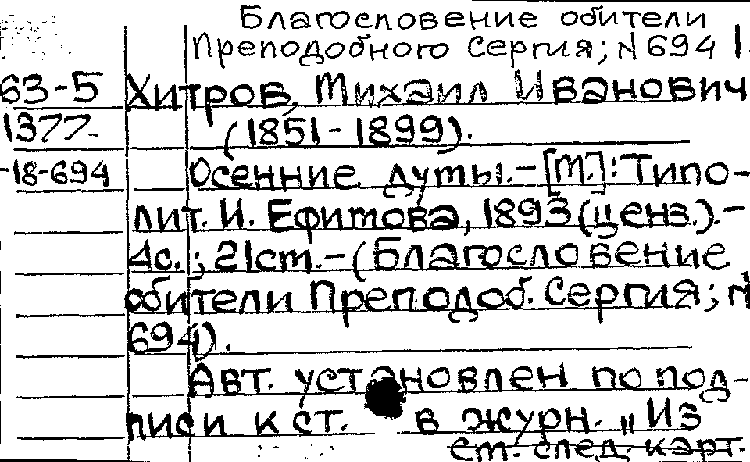 Благословение обители
Преподобного Сергия; N 694
63-5 Хитров, Михаил Иванович
1377 (1851-1899).
-18-694 Осенние думы.-[М.]: Типо-
лит. И. Ефимова, 1893 (ценз.).-
4с.; 21см.-(Благословение
обители Преподоб. Сергия; N
694).
Авт. установлен по под-
писи к ст. в журн. „Из
см. след. карт.